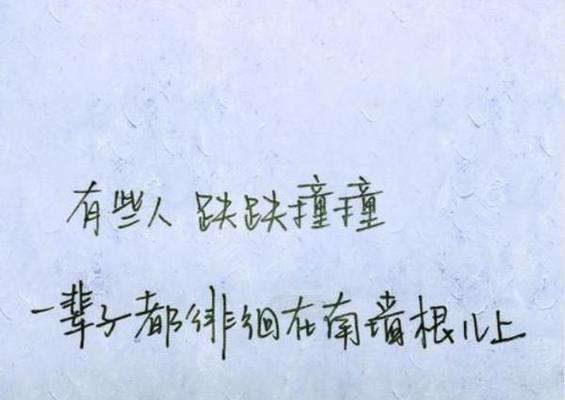 有些人 跌跌撞撞
一辈子都徘徊在南墙根儿上